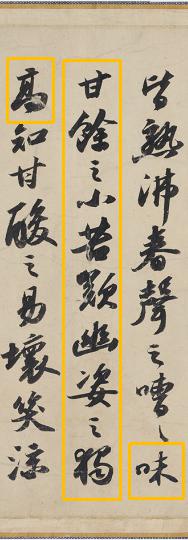 皆熟沸舂聲之嘈〻味
甘餘之小苦歎幽姿之獨
高知甘酸之易壞笑涼